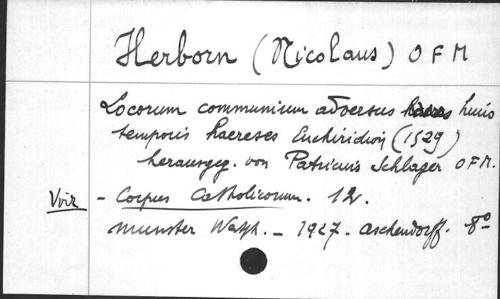 Herborn (Nicolaus) O F M
Locorum communium adversus huius
temporis haereses Enchiridion (1529)
herausgeg. von Patricius Schlager O F M.
Voir - Corpus Catholicorum. 12.
Munster Westph. - 1927. Aschendorff. 8°